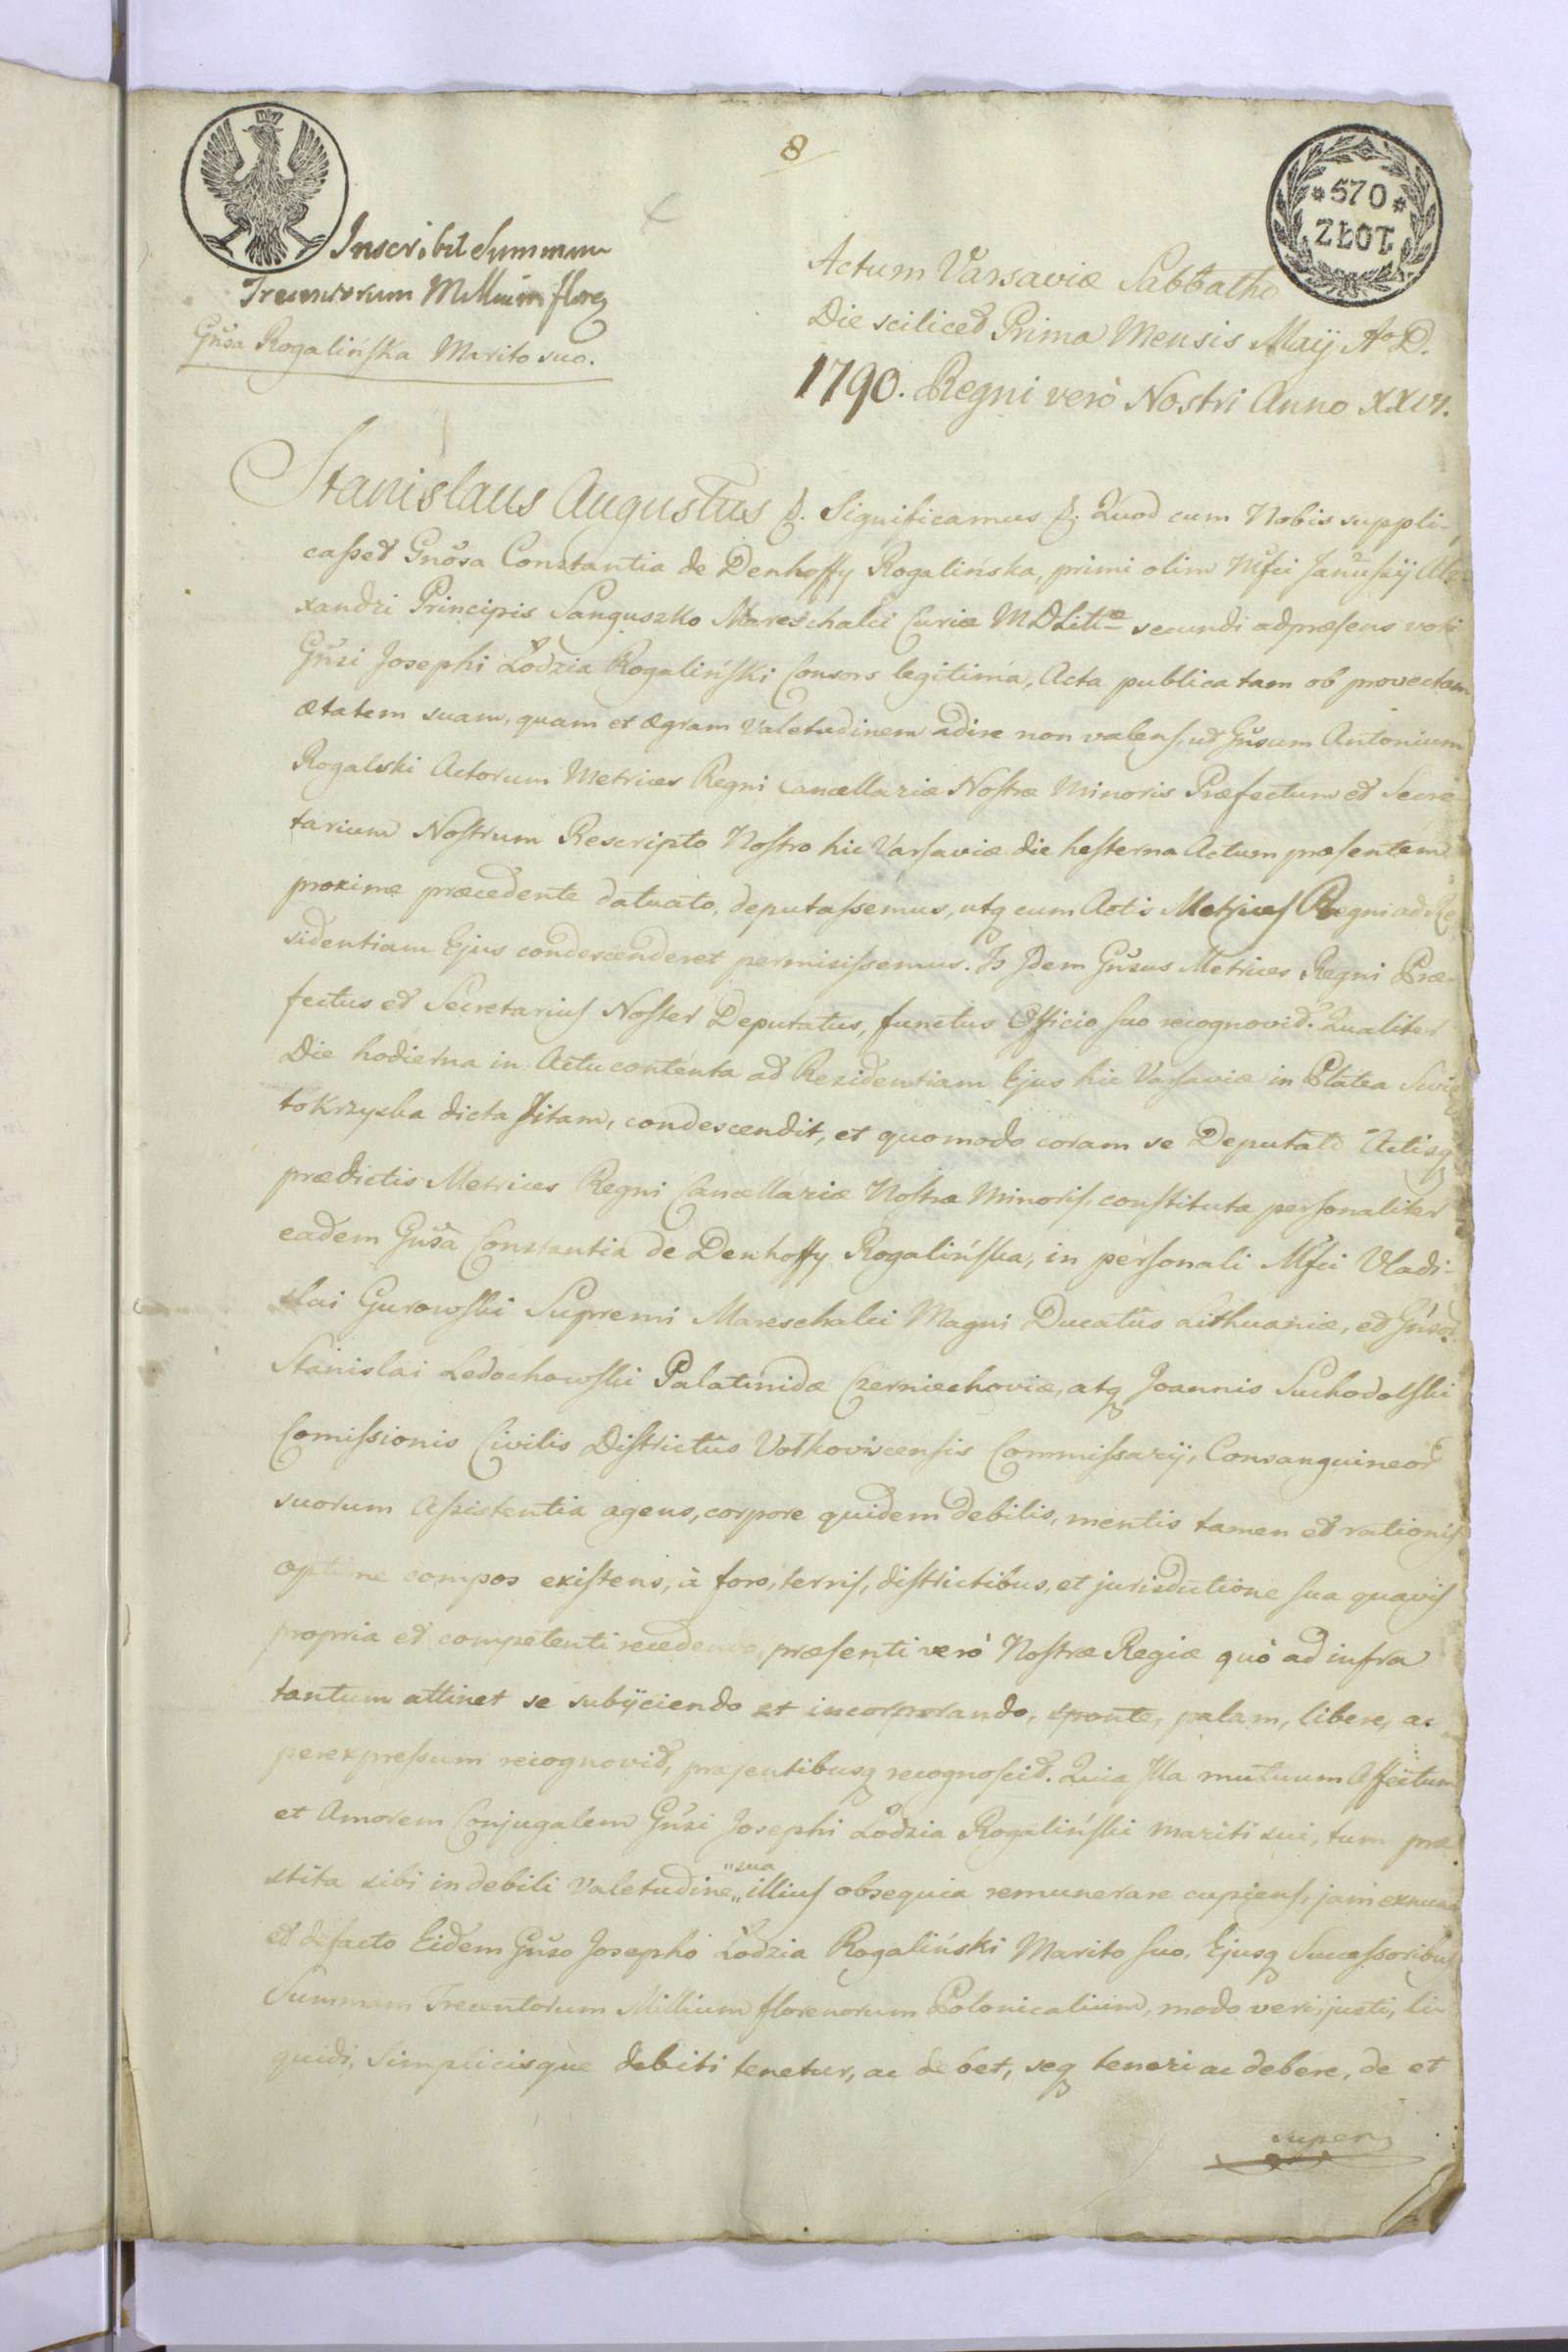 8
570
ZŁOT
Inscribit Summam
Trecentorum Millium floreș
Gn̄sa Rogalińska Marito suo.
Actum Varsaviæ Sabbatho
Die scilicet Prima Mensis Maij Aº D.
1790. Regni verò Nostri Anno XXVI.
Stanislaus Augustus &. Significamus &. Quod cum Nobis suppli-
casset Gnōsa Constantia de Denhoffy Rogalińska, primi olim Mfci Janussij Ale-
xandri Principis Sanguszko Mareschalci Curiæ M D Littæ secundi adpræsens voti
Gn̄si Josephi Łodzia Rogaliński Consors legitima, Acta publica tam ob provectam
ætatem suam, quam et ægram Valetudinem adire non valens, ut Gn̄sum Antonium
Rogalski Actorum Metrices Regni Cancellariæ Nostræ Minoris Præfectum et Secre-
tarium Nostrum Rescripto Nostro hic Varsaviæ die hesterna Actum præsentem
proxime præcedente datuato, deputassemus, utq cum Actis Metrices Regni ad Re
sidentiam Ejus condescenderet permisissemus. Is Idem Gn̄sus Metrices Regni Præ-
fectus et Secretarius Noster Deputatus, functus Officio suo recognovit. Qualiter
Die hodierna in Actu contenta ad Residentiam Ejus hic Varsaviæ in Platea Swię
tokrzyska dicta sitam, condescendit, et quomodo coram se Deputato Actisq
prædictis Metrices Regni Cancellariæ Nostræ Minoris, constituta personaliter
eadem Gn̄sa Constantia de Denhoffy Rogalińska, in personali Mfci Vladi-
slai Gurowski Supremi Mareschalci Magni Ducatūs Lithuaniæ, et Gn̄sor
Stanislai Ledochowski Palatinidæ Czerniechoviæ, atq Joannis Suchodolski
Comissionis Civilis Districtūs Volkoviscensis Commissarij, Consanguineor
suorum Assistentia agens, corpore quidem debilis, mentis tamen et rationis
optime compos existens, à foro, terris, districtibus, et jurisdictione sua quavis
propria et competenti recedendo, præsenti verò Nostræ Regiæ quò ad infra
tantum attinet se subijciendo et incorporando, sponte, palam, libere, ac
perexpressum recognovit, præsentibusq recognoscit. Quia Illa mutuum Affectum
et Amorem Conjugalem Gn̄si Josephi Łodzia Rogaliński mariti sui, tum præ
stita sibi in debili Valetudine "sua illius obsequia remunerare cupiens, jam exnunc
et defacto Eidem Gn̄so Josepho Łodzia Rogaliński Marito suo, Ejusq Successoribus
Summam Trecentorum Millium florenorum Polonicalium, modo veri, justi, li
quidi, Simplicisque debiti tenetur, ac debet, seq teneri ac debere, de et
super